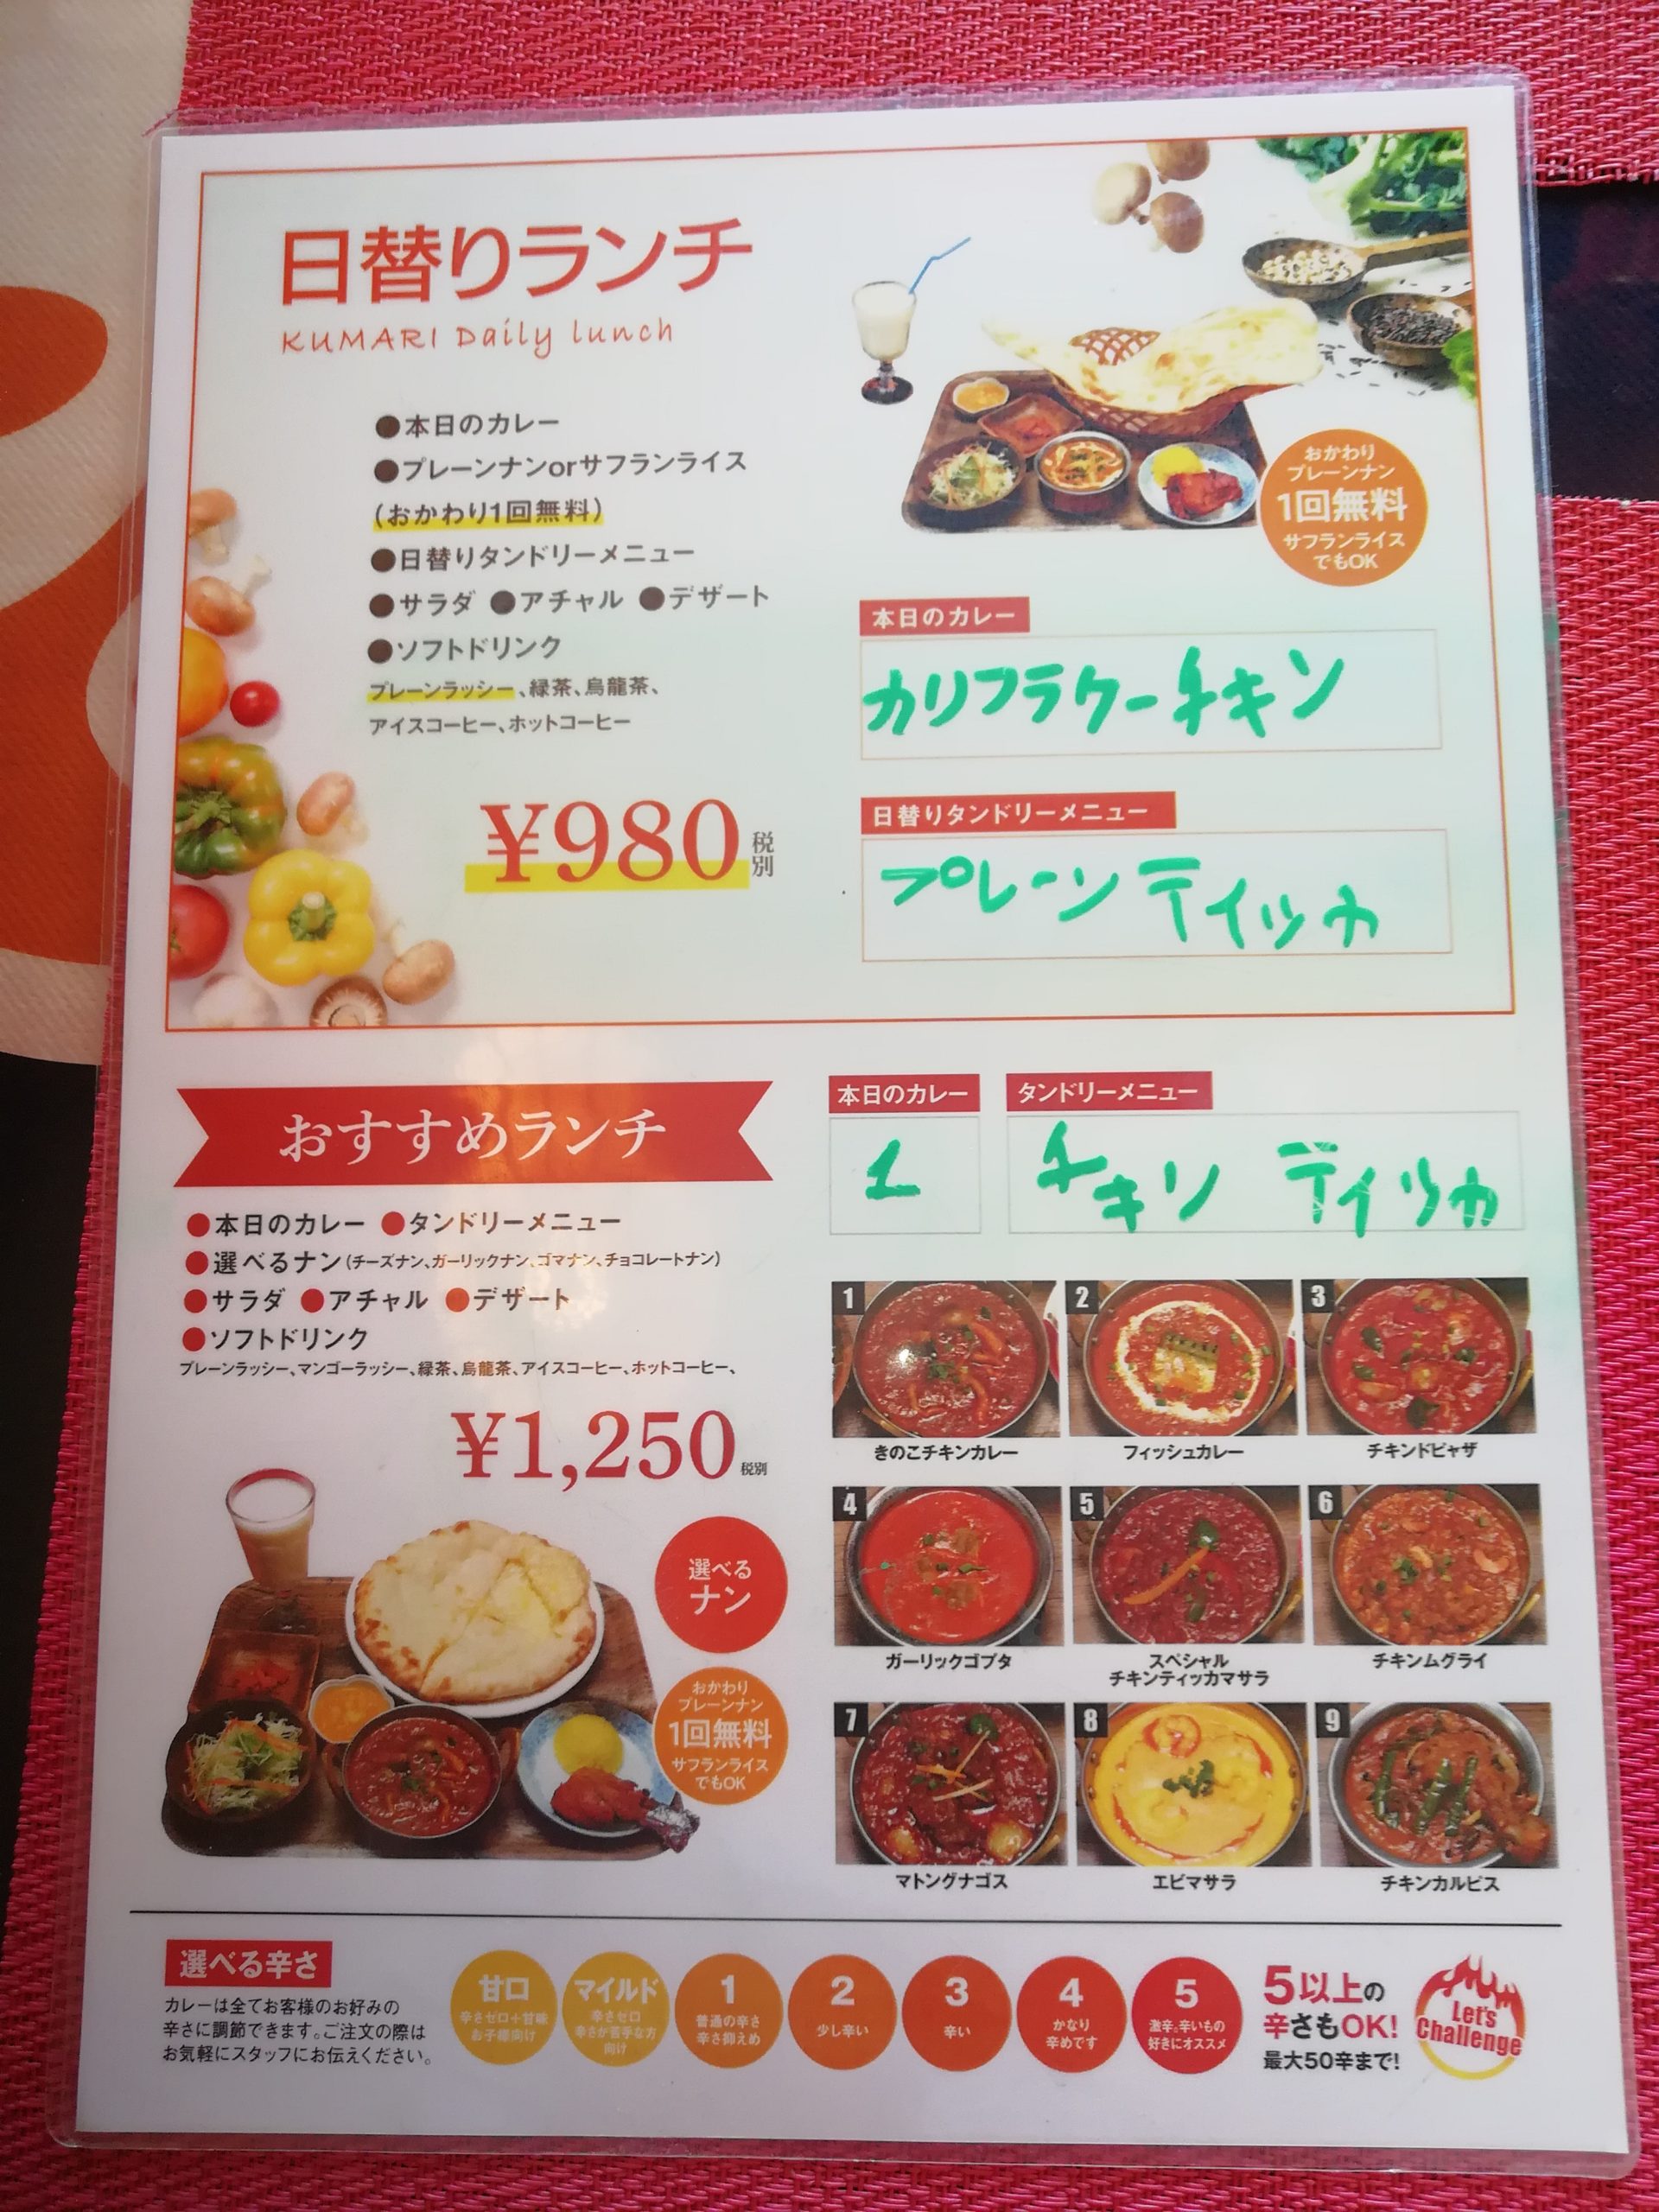 日替りランチ
KUMARI Daily lunch
●本日のカレー
●プレーンナンorサフランライス
(おかわり1回無料)
●日替りタンドリーメニュー
●サラダ ●アチャル ●デザート
●ソフトドリンク
プレーンラッシー、緑茶、烏龍茶、
アイスコーヒー、ホットコーヒー
¥980 税別
おかわり
プレーンナン
1回無料
サフランライス
でもOK
本日のカレー
カリフラワーチキン
日替りタンドリーメニュー
プレーン ティッカ
おすすめランチ
●本日のカレー ●タンドリーメニュー
●選べるナン(チーズナン、ガーリックナン、ゴマナン、チョコレートナン)
●サラダ ●アチャル ●デザート
●ソフトドリンク
プレーンラッシー、マンゴーラッシー、緑茶、烏龍茶、アイスコーヒー、ホットコーヒー、
¥1,250 税別
選べる
ナン
おかわり
プレーンナン
1回無料
サフランライス
でもOK
本日のカレー
1
タンドリーメニュー
チキン ティッカ
1 2 3
きのこチキンカレー フィッシュカレー チキンドピャザ
4 5 6
ガーリックゴプタ スペシャル チキンムグライ
チキンティッカマサラ
7 8 9
マトングナゴス エビマサラ チキンカルビス
選べる辛さ
カレーは全てお客様のお好みの
辛さに調節できます。ご注文の際は
お気軽にスタッフにお伝えください。
甘口
辛さゼロ+甘味
お子様向け
マイルド
辛さゼロ
辛さが苦手な方
向け
1
普通の辛さ
辛さ抑えめ
2
少し辛い
3
辛い
4
かなり
辛めです
5
激辛。辛いもの
好きにオススメ
5以上の
辛さもOK!
最大50辛まで!
Let's
Challenge